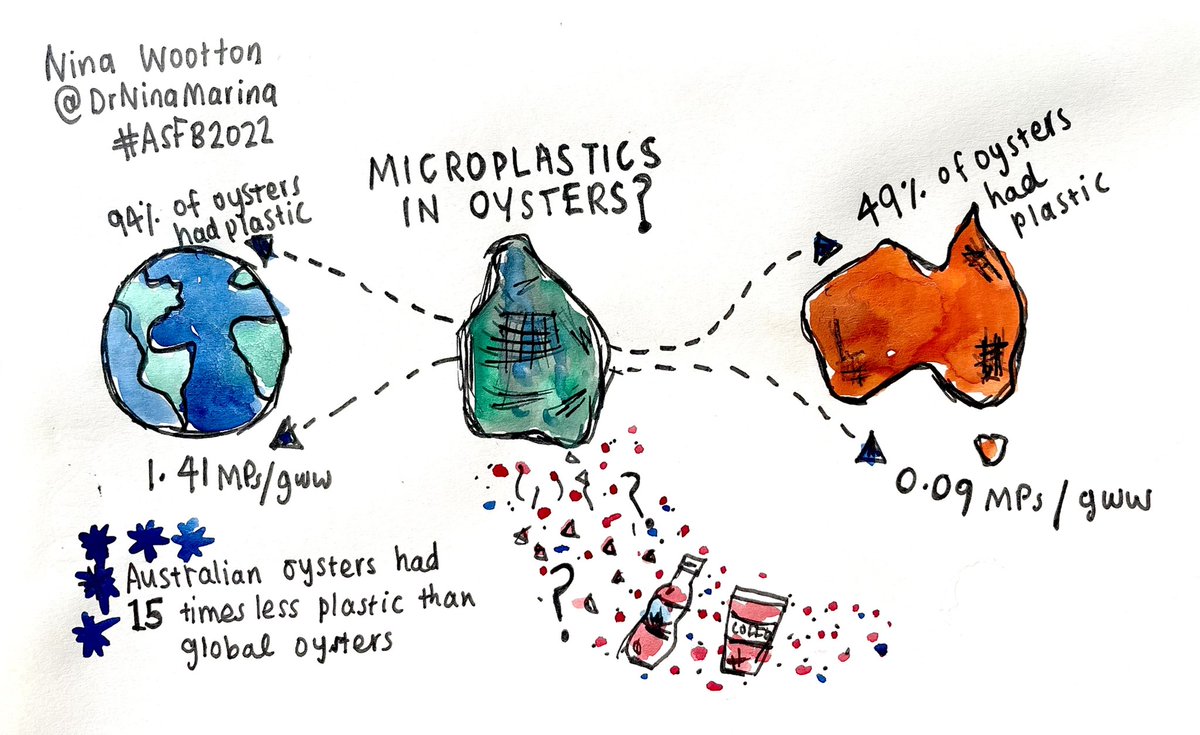 Nina Wootton
@DrNinaMarina
#ASFB2022
MICROPLASTICS
IN OYSTERS?
94% of oysters
had plastic
49% of oysters
had
plastic
1.41 MPs/gww
0.09 MPs/gww
Australian oysters had
15 times less plastic than
global oysters
? ?
?